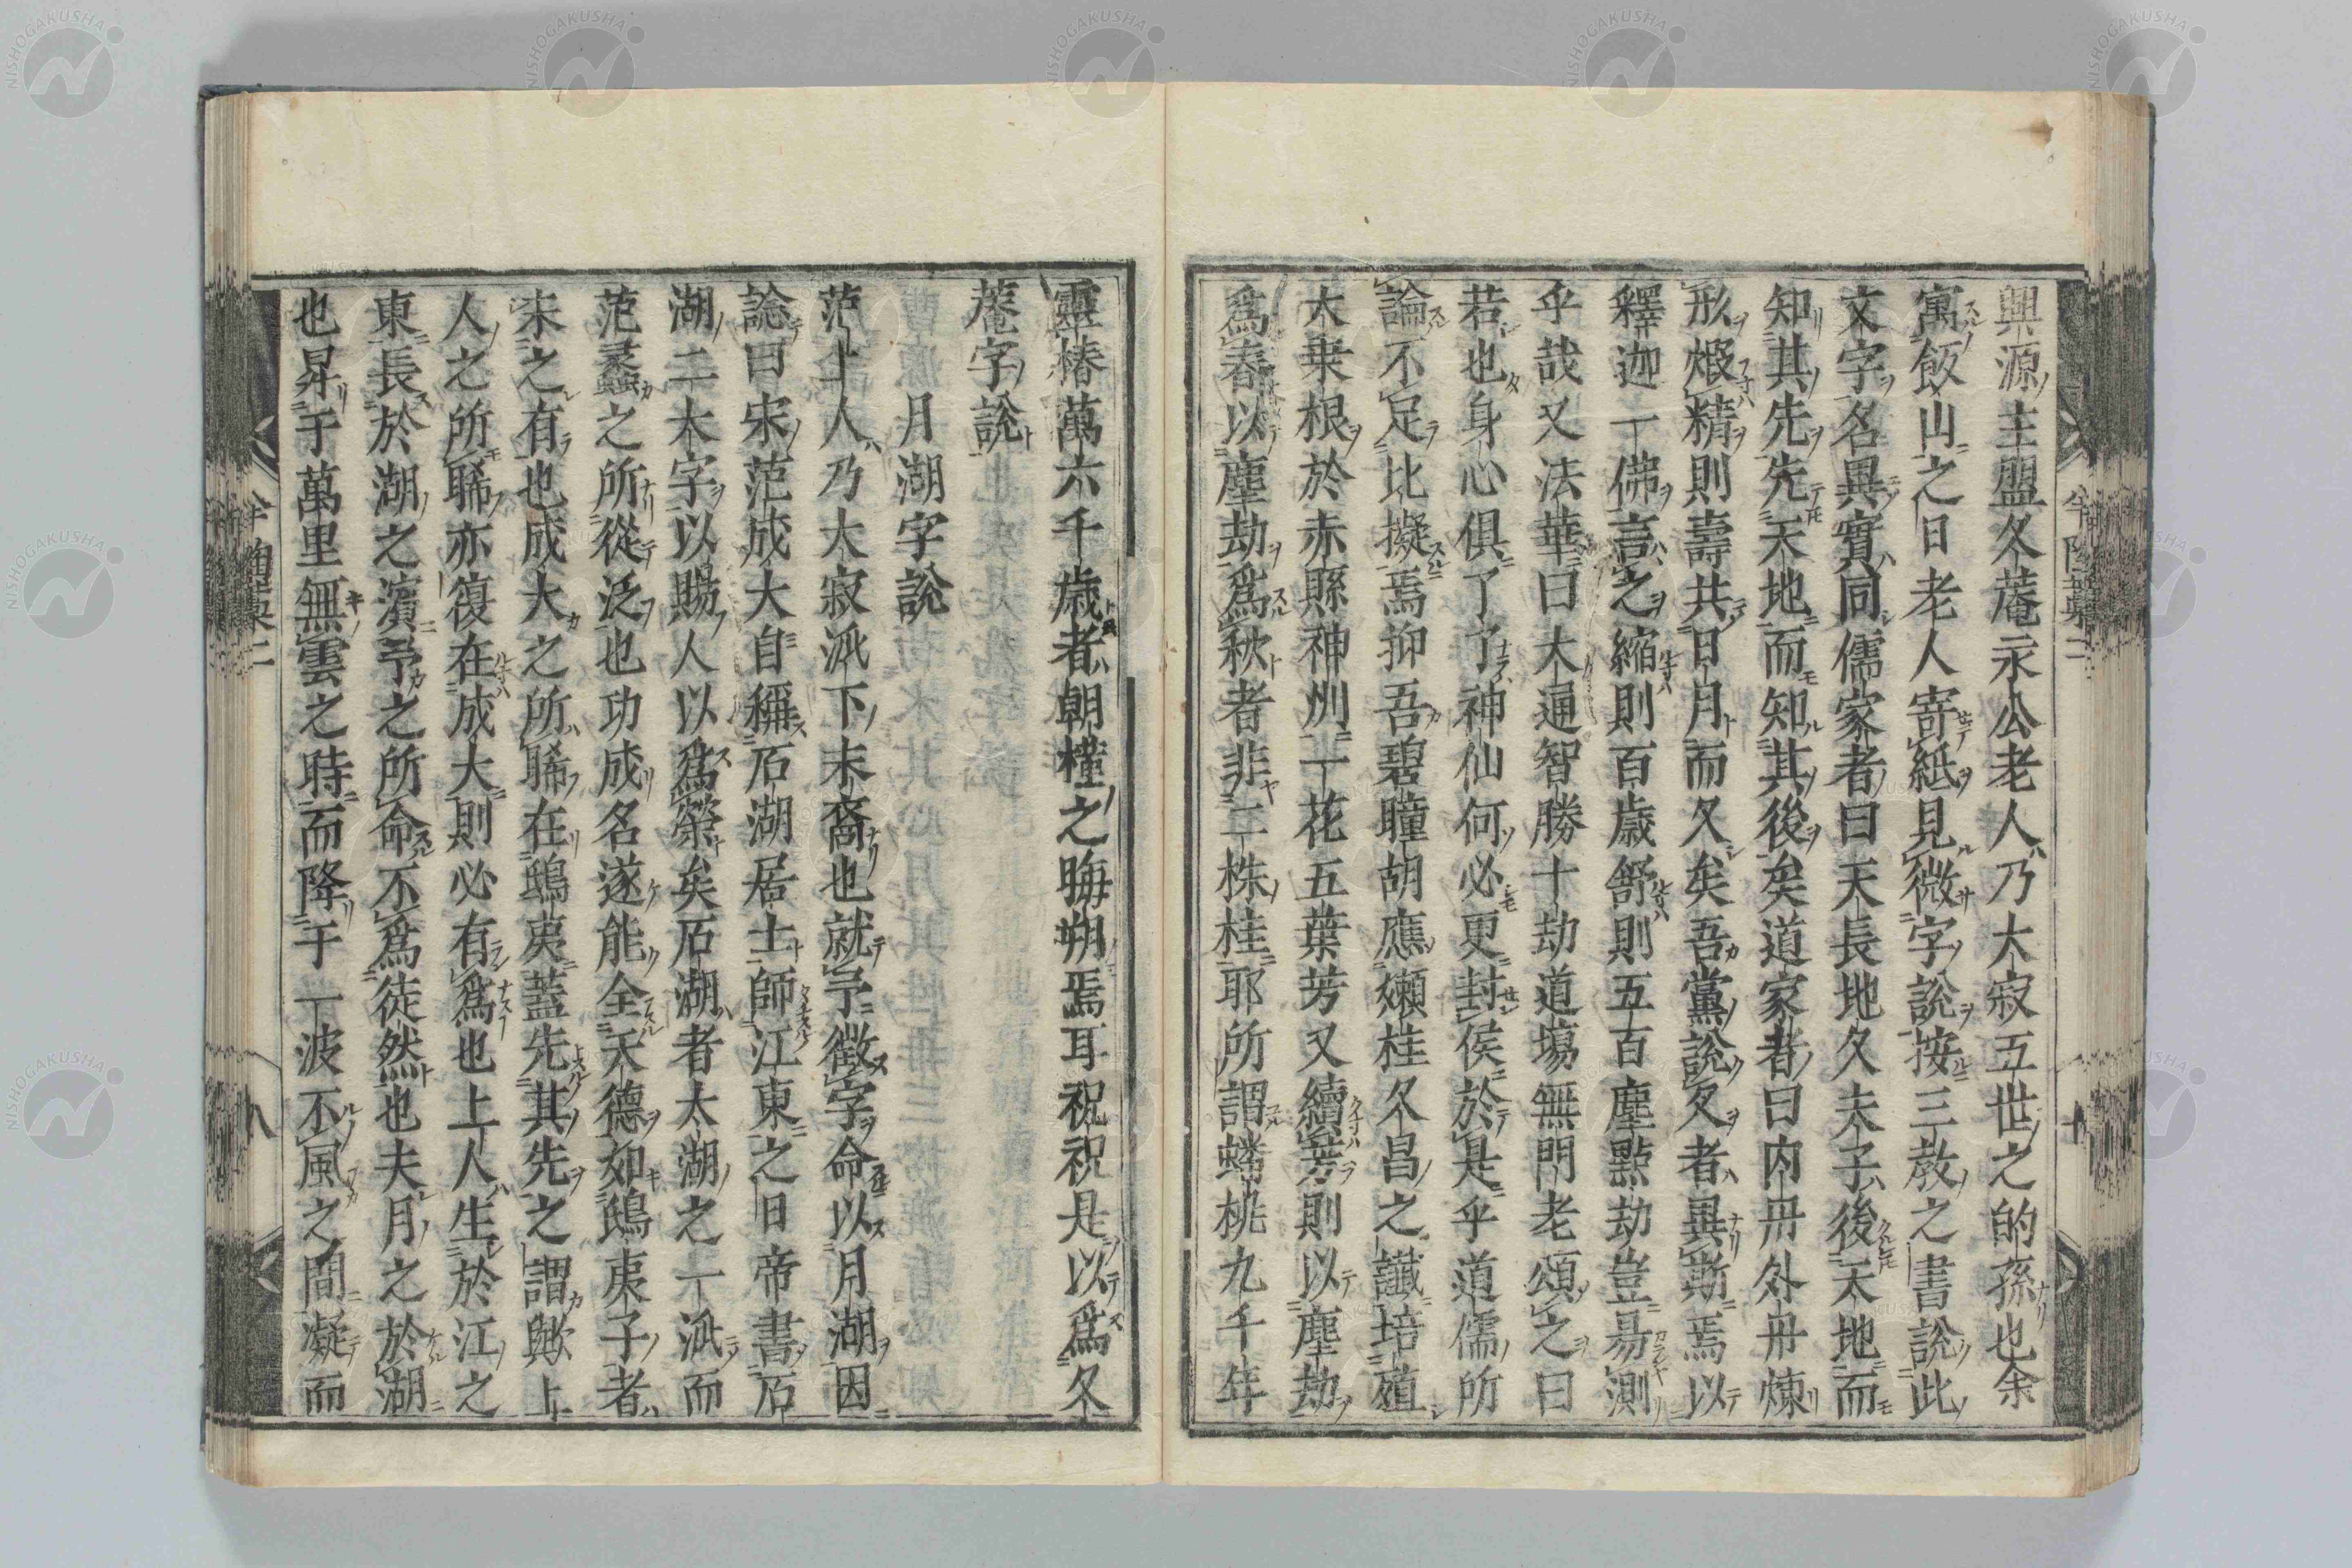 興源主盟久菴永公老人乃大寂五世之的孫也余
寓飯山之日老人寄紙見徴字説按三敎之書説此
文字名異實同儒家者曰天長地久夫子後天地而
知其先先天地而知其後矣道家者曰内丹外丹煉
形煅精則壽共日月而久矣吾黨説久者異斯焉以
釋迦一佛言之縮則百歳舒則五百塵點劫豈昜測
乎哉又法華曰大通智勝十劫道場無門老頌之曰
若也身心俱了了神仙何必更封侯於是乎道儒所
論不足比擬焉抑吾碧瞳胡應嬾桂久昌之讖培殖
大乗根於赤縣神州一花五葉芳又續芳則以塵劫
爲春以塵劫爲秋者非二株桂耶所謂蟠桃九千年
靈椿萬六千歳者朝槿之晦朔焉耳祝祝是以爲久
菴字説
月湖字説
范上人乃大寂派下末裔也就予徴字命以月湖因
諗曰宋范成大自稱石湖居士師江東之日帝書石
湖二大字以賜人以爲榮矣石湖者太湖之一派而
范蠡之所從泛也功成名遂能全天德如鴟夷子者
未之有也成大之所睎在鴟夷蓋先其先之謂歟上
人之所睎亦復在成大則必有爲也上人生於江之
東長於湖之濱予之所命不爲徒然也夫月之於湖
也昇于萬里無雲之時而降于一波不風之間凝而